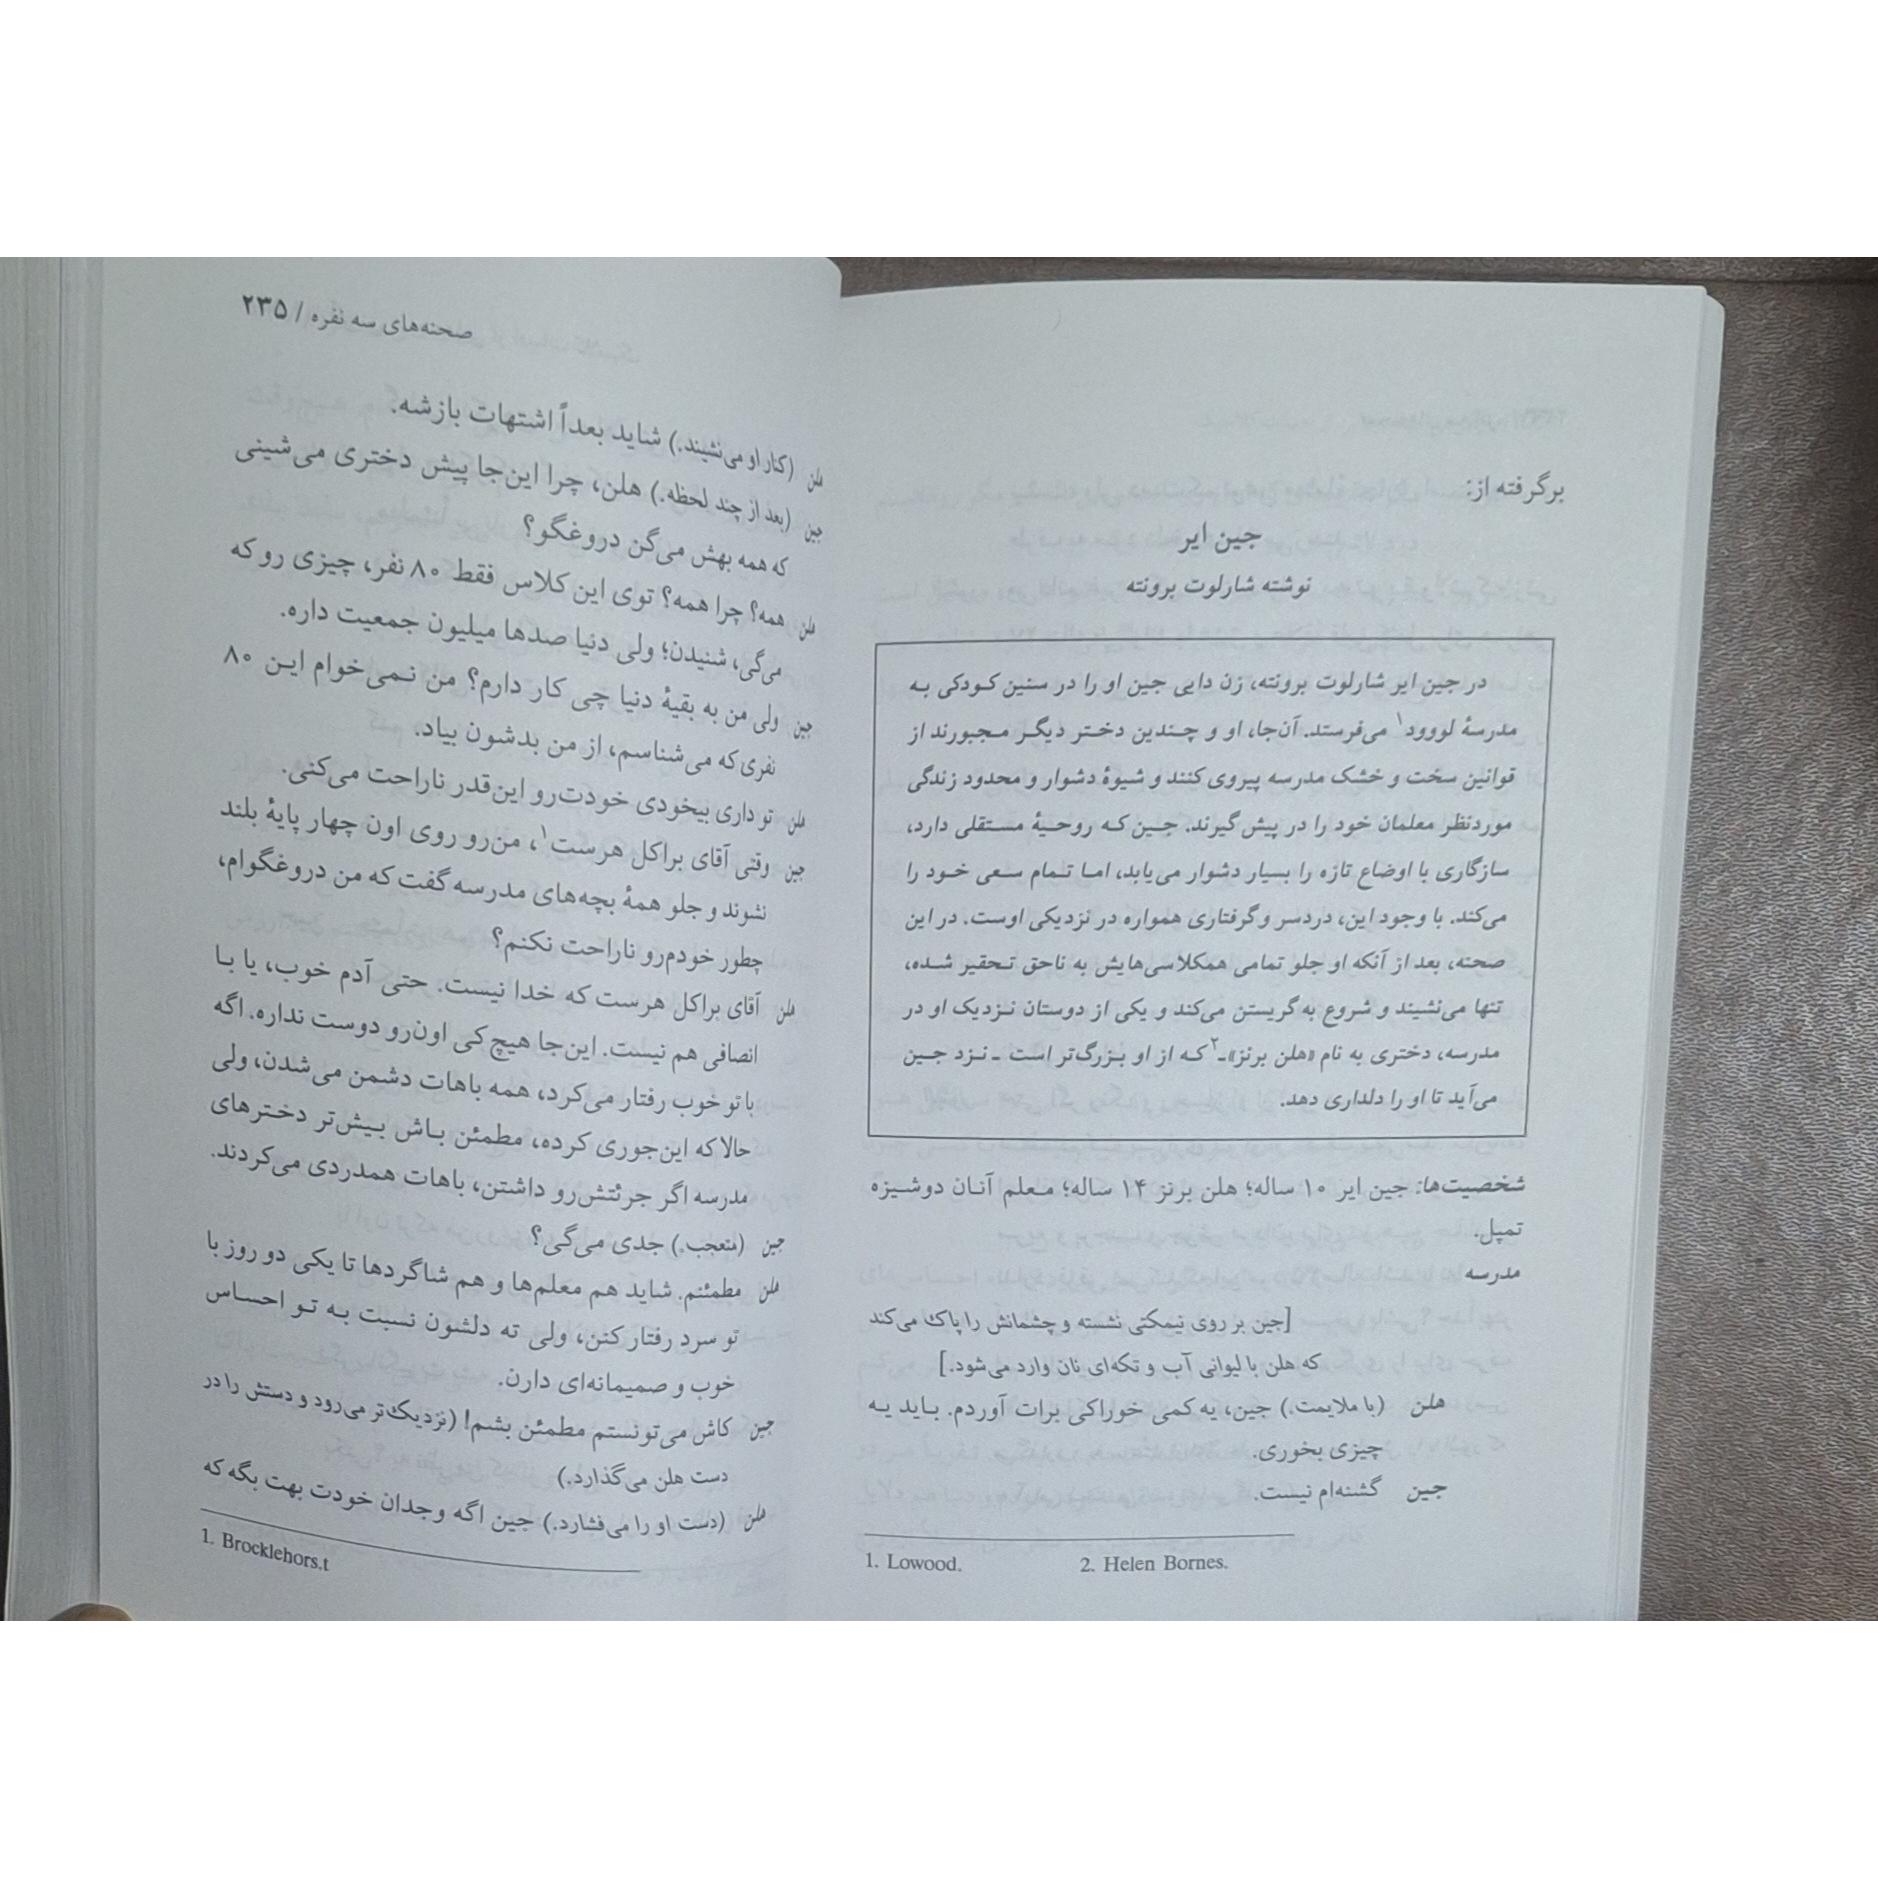 برگرفته از:
جین ایر
نوشته شارلوت برونته
در جین ایر شارلوت برونته، زن دایی جین او را در سنین کودکی به
مدرسۀ لووود۱ می‌فرستد. آن‌جا، او و چندین دختر دیگر مجبورند از
قوانین سخت و خشک مدرسه پیروی کنند و شیوۀ دشوار و محدود زندگی
موردنظر معلمان خود را در پیش گیرند. جین که روحیۀ مستقلی دارد،
سازگاری با اوضاع تازه را بسیار دشوار می‌یابد، اما تمام سعی خود را
می‌کند. با وجود این، دردسر و گرفتاری همواره در نزدیکی اوست. در این
صحنه، بعد از آنکه او جلو تمامی همکلاسی‌هایش به ناحق تحقیر شده،
تنها می‌نشیند و شروع به گریستن می‌کند و یکی از دوستان نزدیک او در
مدرسه، دختری به نام «هلن برنز»ـ۲ که از او بزرگ‌تر است ـ نزد جین
می‌آید تا او را دلداری دهد.
شخصیت‌ها: جین ایر ۱۰ ساله؛ هلن برنز ۱۴ ساله؛ معلم آنان دوشیزه
تمپل.
مدرسه
[جین بر روی نیمکتی نشسته و چشمانش را پاک می‌کند
که هلن با لیوانی آب و تکه‌ای نان وارد می‌شود.]
هلن (با ملایمت.) جین، یه کمی خوراکی برات آوردم. باید یه
چیزی بخوری.
جین گشنه‌ام نیست.
1. Lowood. 2. Helen Bornes.
صحنه‌های سه نفره / ۲۳۵
هلن (کنار او می‌نشیند.) شاید بعداً اشتهات بازشه.
جین (بعد از چند لحظه.) هلن، چرا این‌جا پیش دختری می‌شینی
که همه بهش می‌گن دروغگو؟
هلن همه؟ چرا همه؟ توی این کلاس فقط ۸۰ نفر، چیزی رو که
می‌گی، شنیدن؛ ولی دنیا صدها میلیون جمعیت داره.
جین ولی من به بقیۀ دنیا چی کار دارم؟ من نمی‌خوام این ۸۰
نفری که می‌شناسم، از من بدشون بیاد.
هلن تو داری بیخودی خودت‌رو این‌قدر ناراحت می‌کنی.
جین وقتی آقای براکل هرست۱، من‌رو روی اون چهار پایۀ بلند
نشوند و جلو همۀ بچه‌های مدرسه گفت که من دروغگوام،
چطور خودم‌رو ناراحت نکنم؟
هلن آقای براکل هرست که خدا نیست. حتی آدم خوب، یا با
انصافی هم نیست. این‌جا هیچ‌کی اون‌رو دوست نداره. اگه
با تو خوب رفتار می‌کرد، همه باهات دشمن می‌شدن، ولی
حالا که این‌جوری کرده، مطمئن باش بیش‌تر دخترهای
مدرسه اگر جرئتش‌رو داشتن، باهات همدردی می‌کردند.
جین (متعجب.) جدی می‌گی؟
هلن مطمئنم. شاید هم معلم‌ها و هم شاگردها تا یکی دو روز با
تو سرد رفتار کنن، ولی ته دلشون نسبت به تو احساس
خوب و صمیمانه‌ای دارن.
جین کاش می‌تونستم مطمئن بشم! (نزدیک‌تر می‌رود و دستش را در
دست هلن می‌گذارد.)
هلن (دست او را می‌فشارد.) جین اگه وجدان خودت بهت بگه که
1. Brocklehors.t